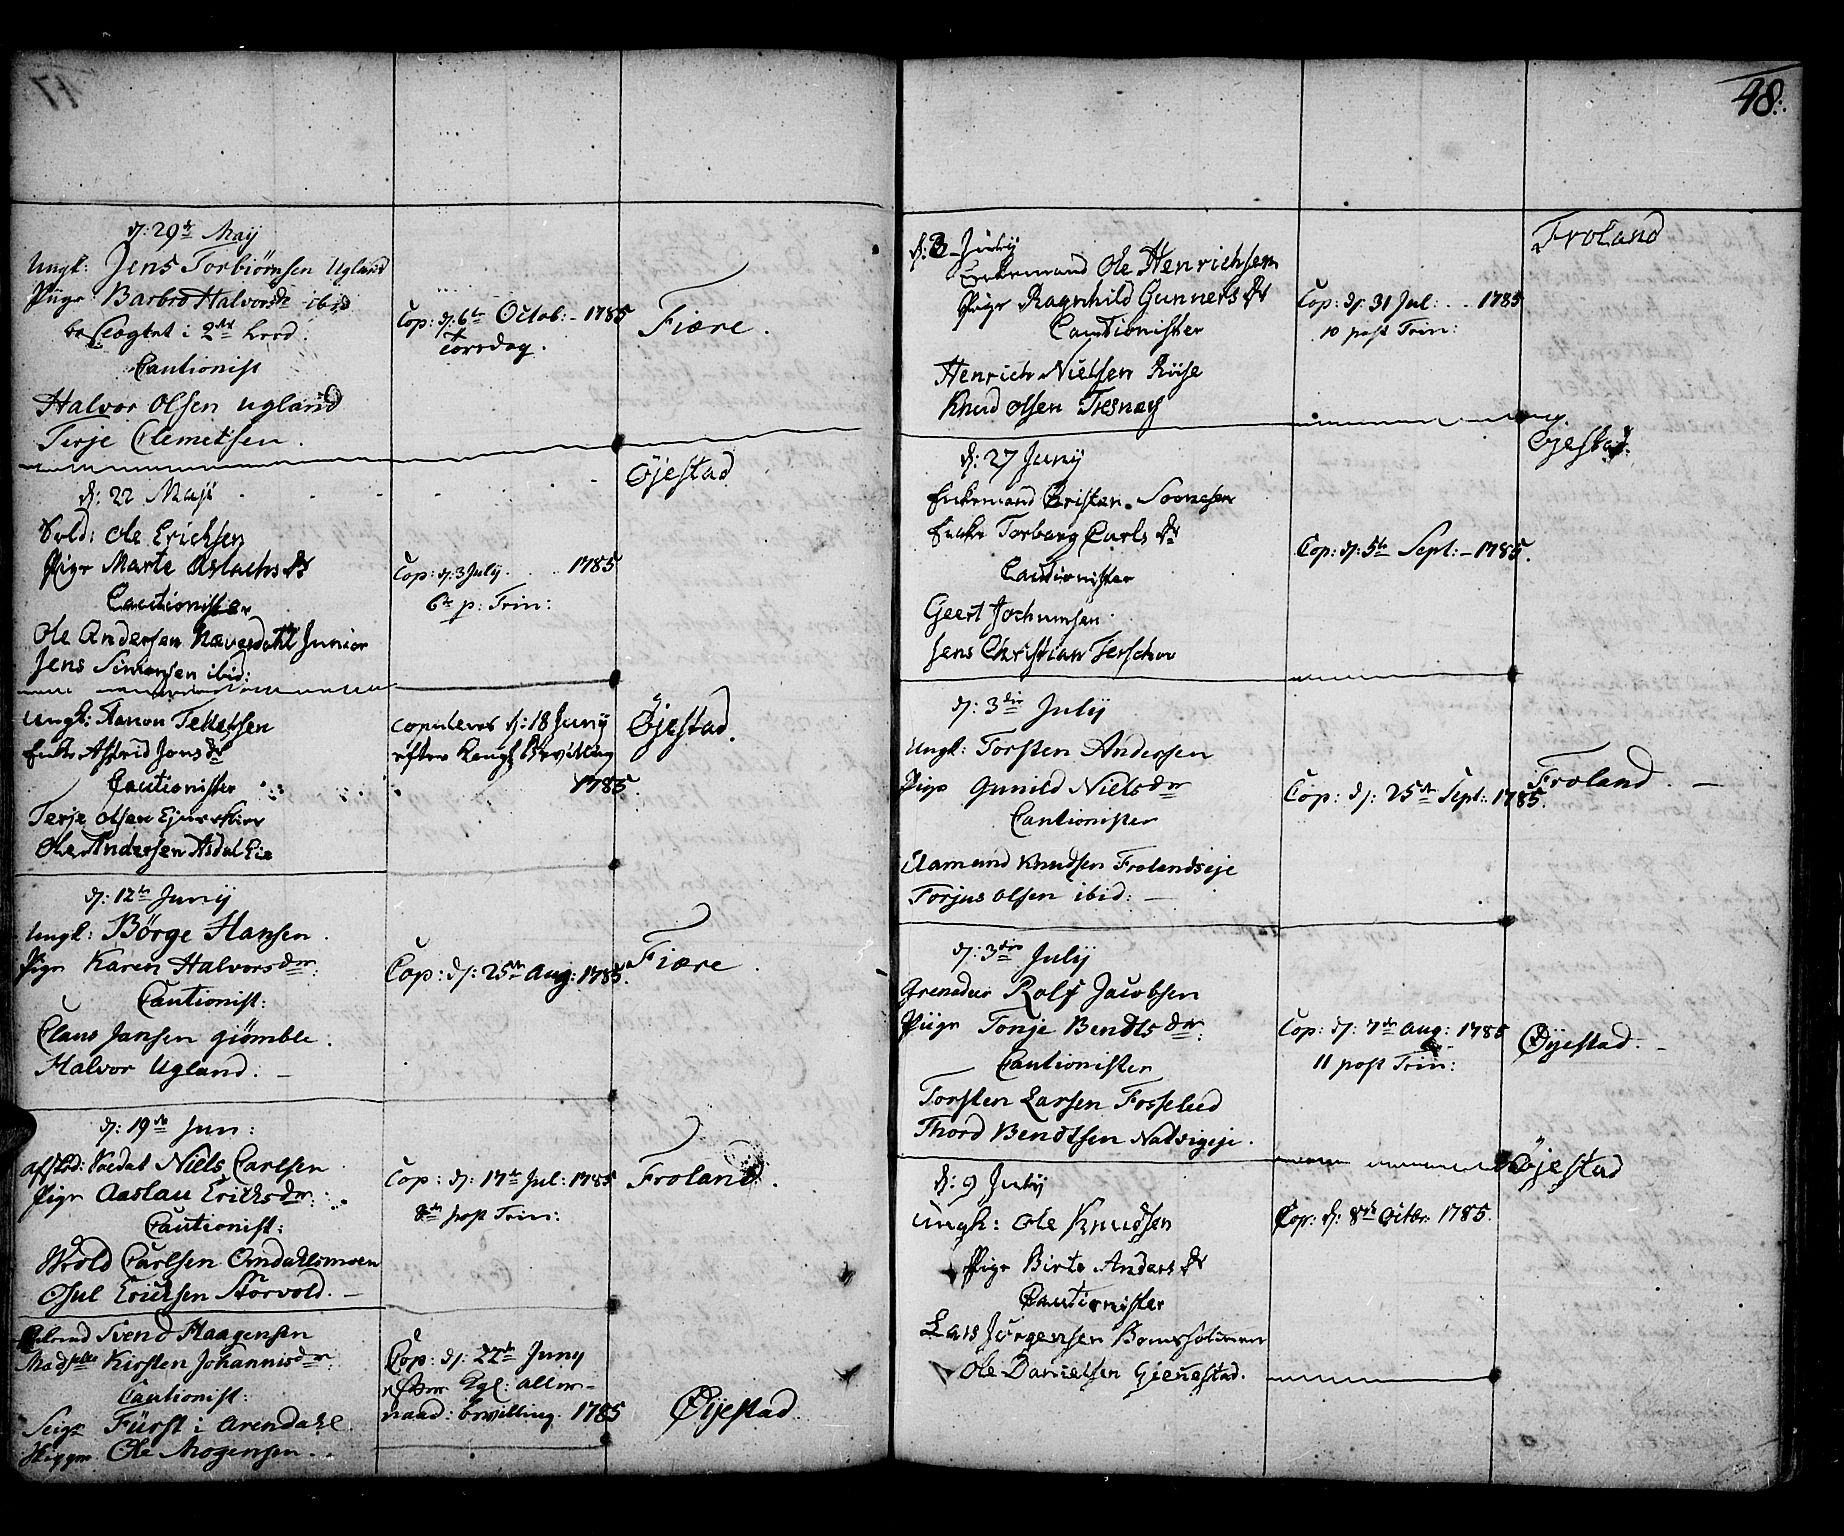 d: 29de Maij
Ungk: Jens Torbiørnsen Ugland
Pige Barbro Halvorsdr ibid
beslægtet i 2det Leed.
Cautionist
Halvor Olsen Ugland
Terje Clemetsen.
Cop: d: 6te Octob: - 1785
Torsdag.
Fiære.
d: 22 Maji
Sold: Ole Erichsen
Pige Marte Aslachsdr
Cautionister
Ole Andersen Næversdahl Junior
Jens Simonsen ibid:
Cop: d: 3 July. 1785
6te p: Trin:
Öjestad
Ungk: Aanon Tellefsen
Enke Astrid Jonsdr
Cautionister
Terje Olsen
Ole Andersen Asdal Eie
Copuleres d: 18 Junij
efter Kongl Bevilling
1785.
Öjestad.
d: 12te Junij
Ungk: Börge Hansen.
Pige Karen Halvorsdtr:
Cautionist:
Claus Jansen Giömble.
Halvor Ugland. -
Cop: d: 25de Aug: 1785.
Fiære.
d: 19de Jun:
Afsked: Soldat Niels Carlsen
Pige Aaslau Ericksdtr:
Cautionist:
Wrold Carlsen Omdahlsmoen
Osul Ericksen Storvold. -
Cop: d: 17de Jul: 1785
8de post Trin:
Froland.
Svend Haagensen
Madselle Kirsten Johannisdtr:
Cautionist:
Seigr Fürst i Arendahl.
Ole Mogensen.
Cop: d: 22de Juny
efter Kgl: aller-
naad: bevilling. 1785
Øyestad
48.
d: 3 July
Enkemand Ole Henrichsen
Pige Ragnhild Gunnersdr
Cautionister
Henrich Nielsen Riise
Knud Olsen Tresnes
Cop: d: 31 Jul: - - 1785
10 post Trin:
Froland
d: 27 Junij
Enkemand Christen
Enke Torborg Carlsdr
Cautionister
Geert Jochumsen
Jens Christian Ferschou
Cop: d: 5te Sept: - 1785.
Öjestad.
d: 3die July
Ungk: Torsten Andersen
Pige Gunild Nielsdtr
Cautionister
Aamund Knudsen Frolandseje
Torjus Olsen ibid: -
Cop: d: 25de Sept: 1785.
Froland. -
d: 3die July
Grenadeer Rolf Jacobsen
Pige Tonje Bendtsdtr:
Cautionister
Torsten Larsen Fosselied
Thord Bendtsen Natvigeje.
Cop: d: 7de Aug: 1785
11 post Trin:
Øyestad. -
d: 9 July
Ungk: Ole Knudsen
Pige Birte Andersdr
Cautionister
Lars Jörgensen
Ole Danielsen Gieuestad.
Cop: d: 8de Octbr. 1785.
Öjestad